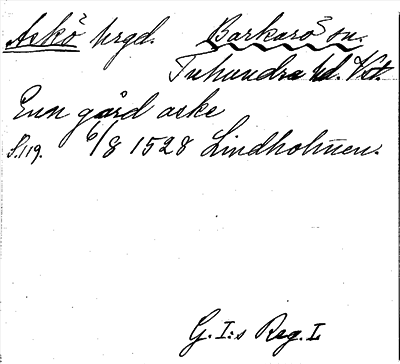 Askö hrgd. Barkarö sn.
Tuhundra hd. Vst.
Enn gård aske
S.119. 6/8 1528 Lindholmen.
G. I:s Reg. I